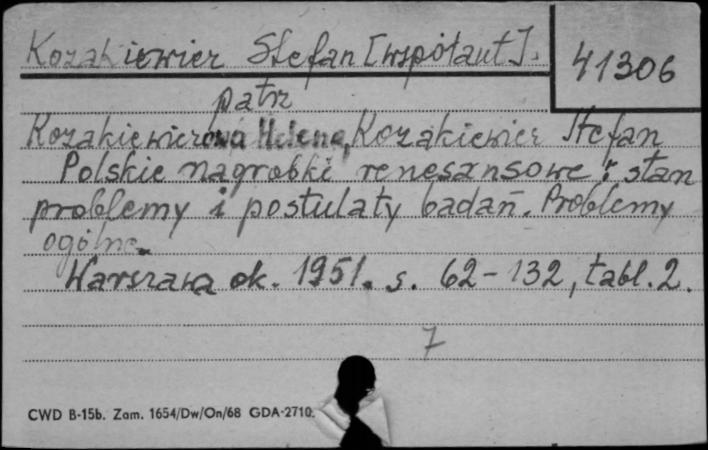 Kozakiewicz Stefan [współaut].
41306
patrz
Kozakiewiczowa Helena, Kozakiewicz Stefan
Polskie nagrobki renesansowe: stan
problemy i postulaty badań. Problemy
ogólne.
Warszawa ok. 1951. s. 62-132, tabl. 2.
7
CWD B-15b. Zam. 1654/Dw/On/68 GDA-2710.